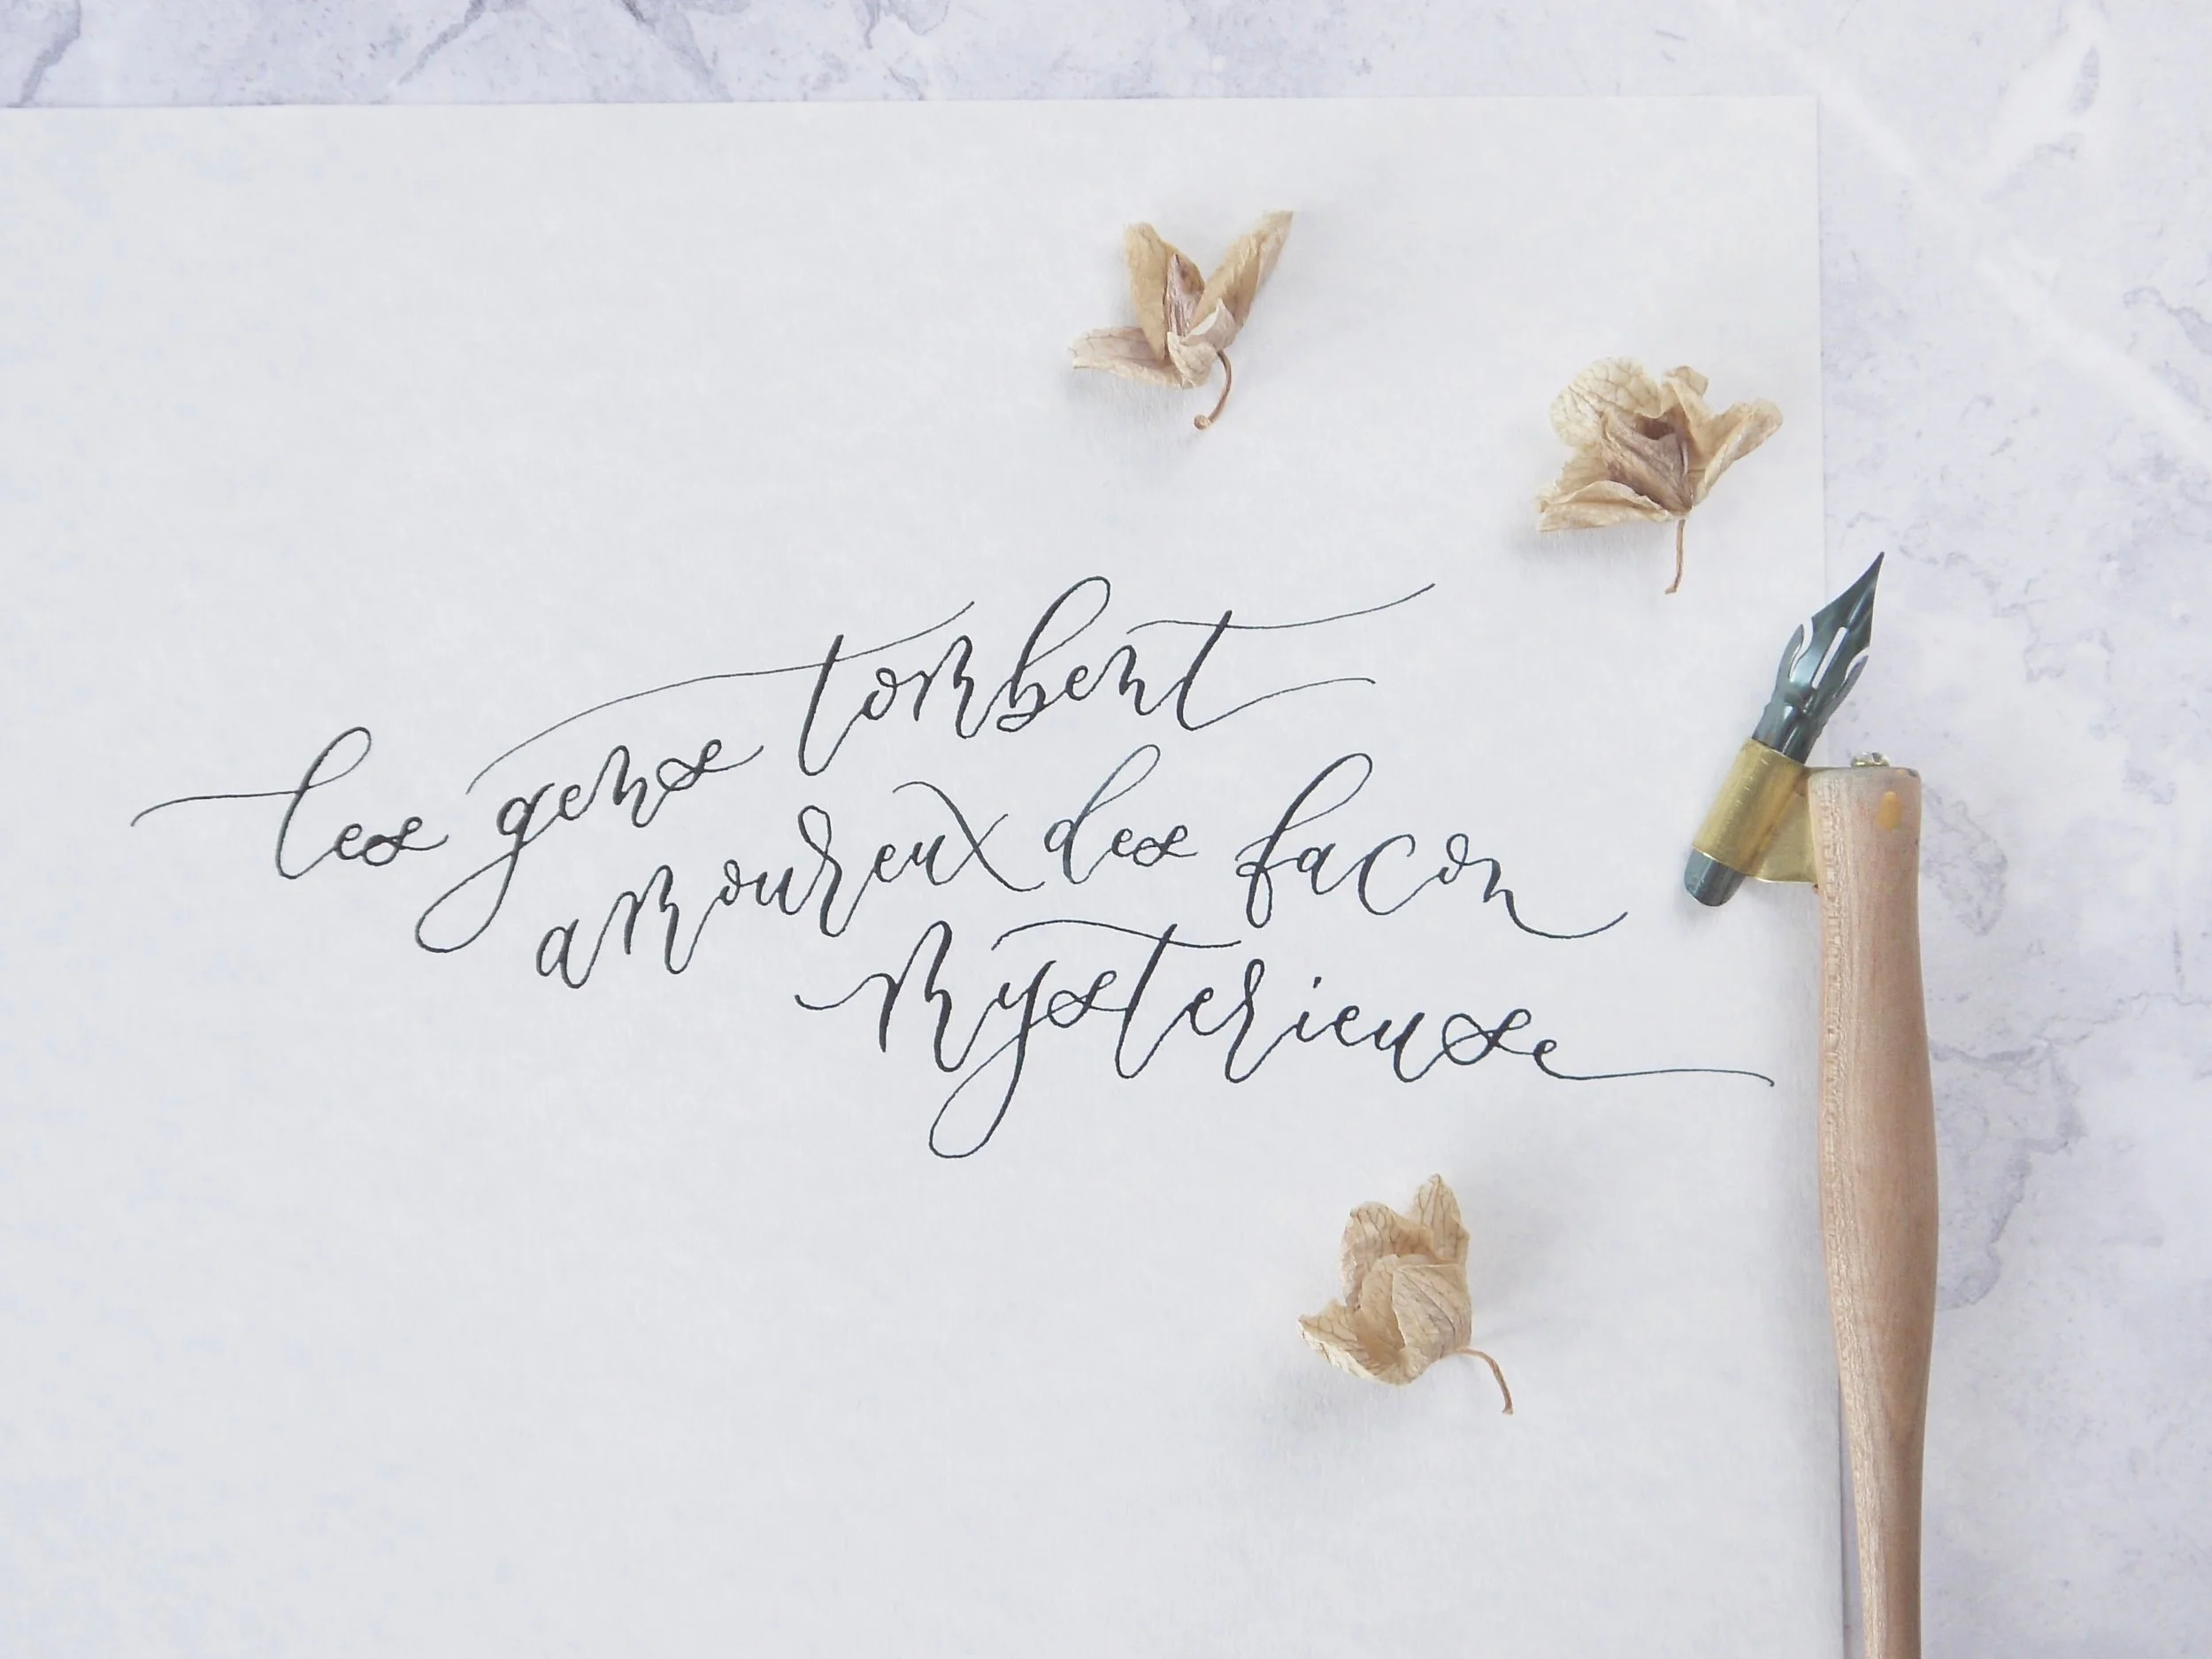 les gens tombent
amoureux des facon
mysterieuse